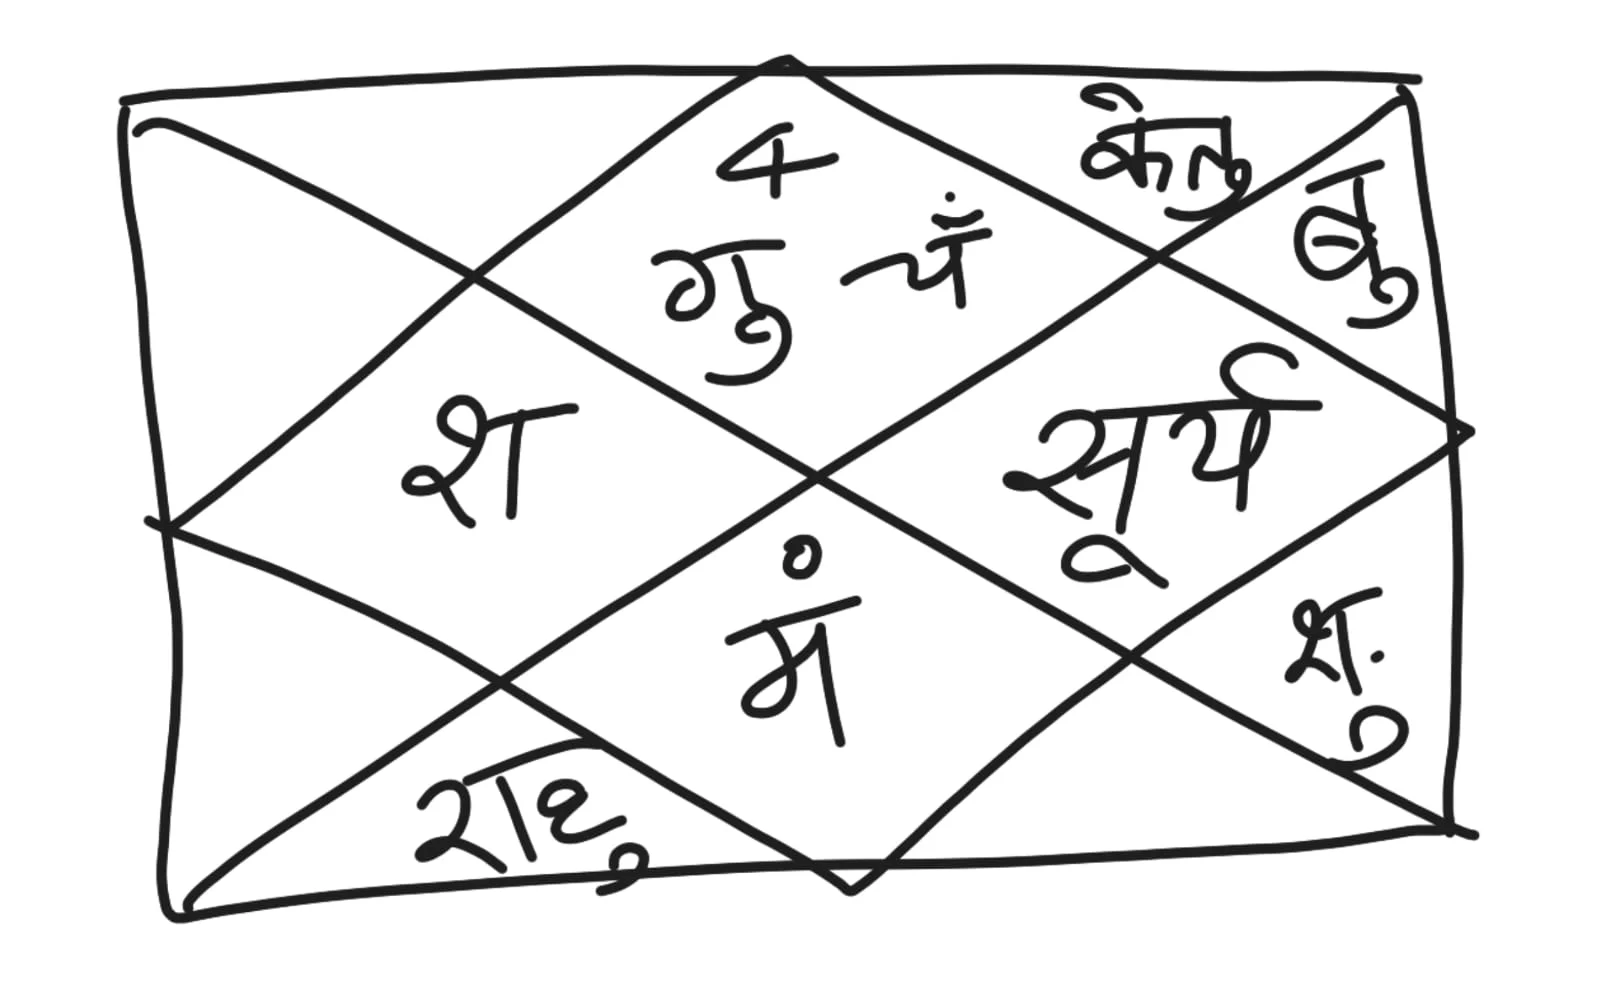 4
केतु
गु चं
बु
श
सूर्य
मं
शु.
राहु